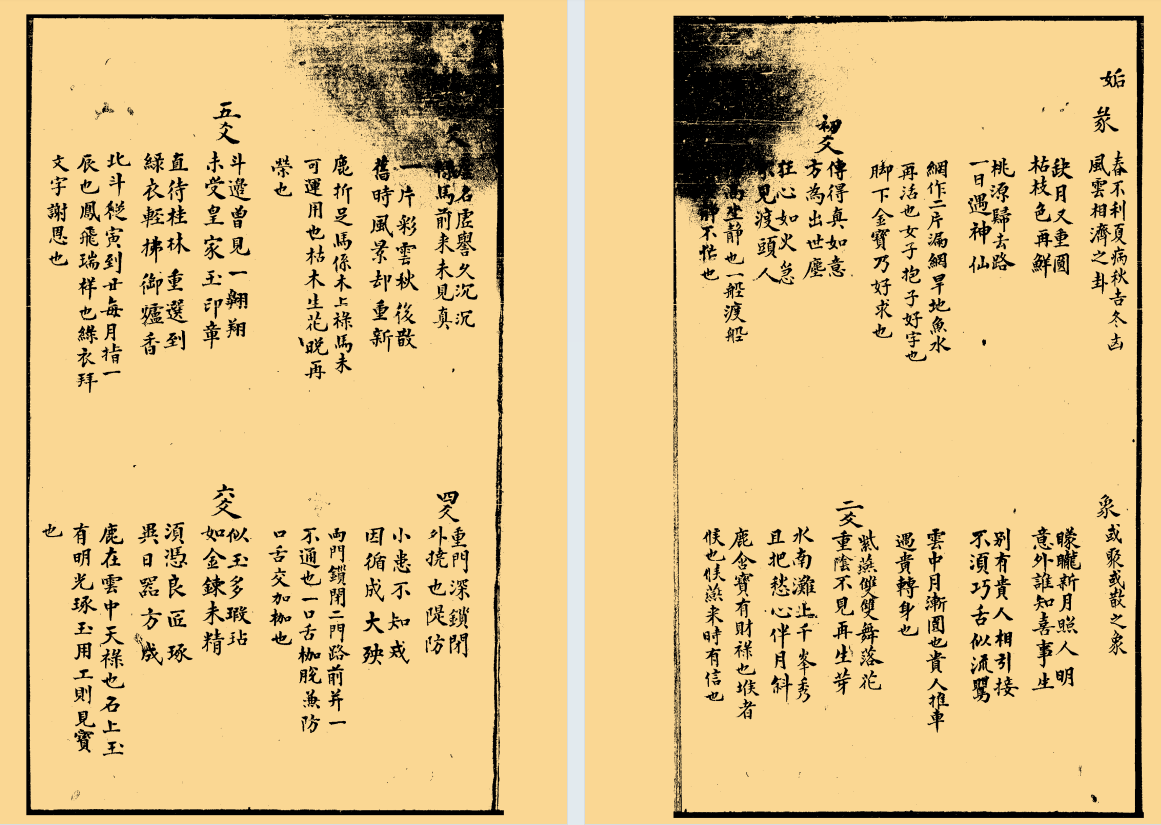 姤
彖
春不利夏病秋吉冬凶
風雲相濟之卦
缺月又重圓
枯枝色再鮮
桃源歸去路
一日遇神仙
網作二片漏網旱地魚水
再活也女子抱子好字也
脚下金寶乃好求也
象
或聚或散之象
朦朧新月照人明
意外誰知喜事生
别有貴人相引接
不須巧舌似流鶯
雲中月漸圓也貴人推車
遇貴轉身也
初爻
傳得真如意
方為出世塵
狂心如火急
見渡頭人
坐静也一般渡船
不怕也
二爻
紫燕雙雙舞落花
重陰不見再生芽
水南灘上千峯秀
且把愁心伴月斜
鹿含寶有財祿也堠者
候也候燕来時有信也
爻
虛名虛譽久沉沉
祿馬前来未見真
一片彩雲秋後散
舊時風景却重新
鹿折足馬係木上祿馬未
可運用也枯木生花晚再
榮也
四爻
重門深鎖閉
外撓也隄防
小患不知戒
因循成大殃
両門鎖閉二門路前并一
不通也一口舌枷脫兼防
口舌交加枷也
五爻
斗邉曾見一翱翔
未受皇家玉印章
直待桂林重選到
緑衣輕拂御爐香
北斗從寅到丑每月指一
辰也鳳飛瑞祥也緑衣拜
文字謝恩也
六爻
似玉多瑕玷
如金鍊未精
須憑良匠琢
異日器方成
鹿在雲中天祿也石上玉
有明光琢玉用工則見寳
也